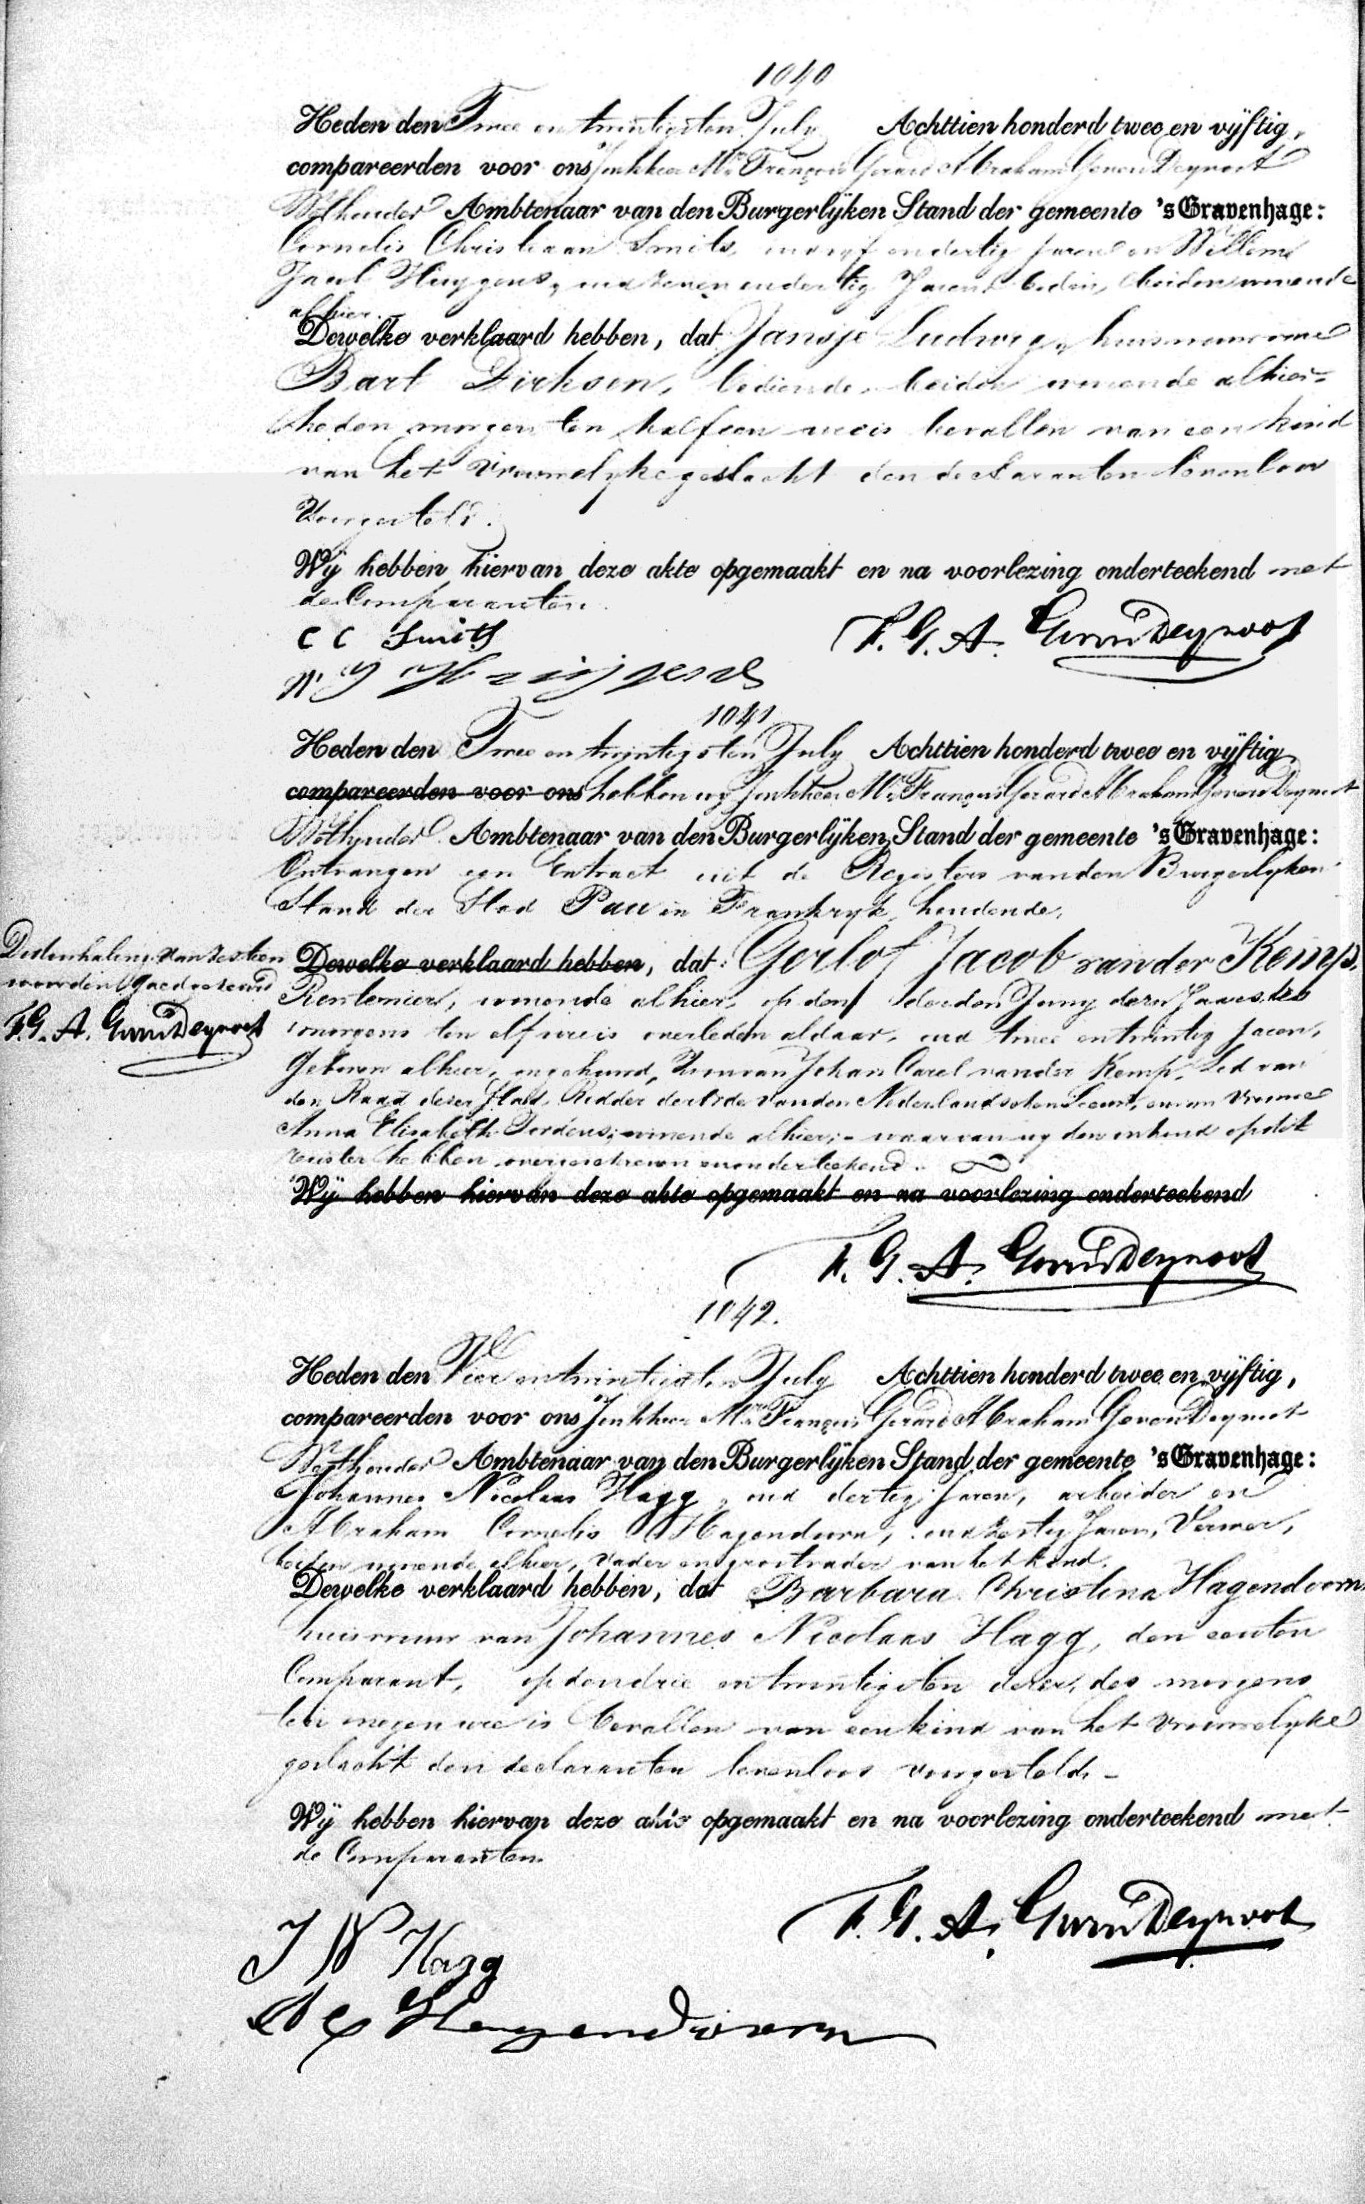 1040
Heden den Twee en twintigsten July Achttien honderd twee en vijftig,
compareerden voor ons Jonkheer Mr François Gerard Abraham Gevers Deynoot
Wethouder Ambtenaar van den Burgerlijken Stand der gemeente 's Gravenhage:
Cornelis Christiaan Smits, oud vijf en dertig jaren en Willem
Jacob Huygens, oud zeven en dertig Jaren beden, beiden wonende
alhier.
Dewelke verklaard hebben, dat Jansje Ludwig, huisvrouw van
Bart Dirksen, bediende, beiden wonende alhier
heden morgen ten half een ure is bevallen van een kind
van het Vrouwelyke geslacht den declaranten levenloos
Voorgesteld.
Wij hebben hiervan deze akte opgemaakt en na voorlezing onderteekend met
de Comparanten.
C C Smits F. G. A. Gevers Deynoot
W J Huijgens
1041
Heden den Twee en twintigsten July Achttien honderd twee en vijftig
compareerden voor ons hebben wy Jonkheer Mr François Gerard Abraham Gevers Deynoot
Wethouder Ambtenaar van den Burgerlijken Stand der gemeente 's Gravenhage:
Ontvangen een Extract uit de Registers van den Burgerlyken
Stand der Stad Pau in Frankryk, houdende,
De doorhaling van zestien
woorden goedgekeurd
F. G. A. Gevers Deynoot
Dewelke verklaard hebben, dat: Gerlof Jacob van der Kemp,
Rentenier, wonende alhier, op den derden Juny dezes Jaars des
morgens ten elf ure is overleden aldaar, oud twee en twintig jaren,
Geboren alhier, ongehuwd, Zoon van Johan Carel van der Kemp, Lid van
den Raad dezer Stad, Ridder der Orde van den Nederlandschen Leeuw, en van Vrouwe
Anna Elisabeth Jordens, wonende alhier; - waarvan wy den inhoud op dit
register hebben overgeschreven en onderteekend.
Wij hebben hiervan deze akte opgemaakt en na voorlezing onderteekend
F. G. A. Gevers Deynoot
1042.
Heden den Vier en twintigsten July Achttien honderd twee en vijftig,
compareerden voor ons Jonkheer Mr François Gerard Abraham Gevers Deynoot
Wethouder Ambtenaar van den Burgerlijken Stand der gemeente 's Gravenhage:
Johannes Nicolaas Hagg, oud dertig Jaren, arbeider en
Abraham Cornelis Hagendoorn, oud zestig Jaren, Verwer,
beiden wonende alhier, vader en grootvader van het kind.
Dewelke verklaard hebben, dat Barbara Christina Hagendoorn
huisvrouw van Johannes Nicolaas Hagg, den eersten
Comparant, op den drie en twintigsten dezer, des morgens
ten negen ure is bevallen van een kind van het vrouwelyke
geslacht den declaranten levenloos voorgesteld. -
Wij hebben hiervan deze akte opgemaakt en na voorlezing onderteekend met
de Comparanten.
F. G. A. Gevers Deynoot
J N Hagg
A C Hagendoorn